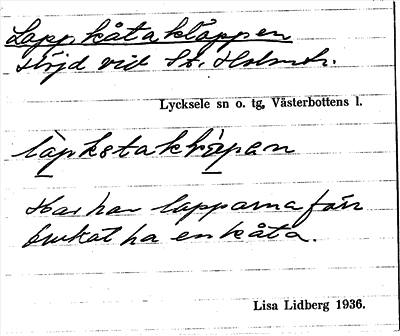 Lappkåtakläppen
höjd vid St. Holmtr.
Lycksele sn o. tg, Västerbottens l.
Här har lapparna förr
brukat ha en kåta.
Lisa Lidberg 1936.